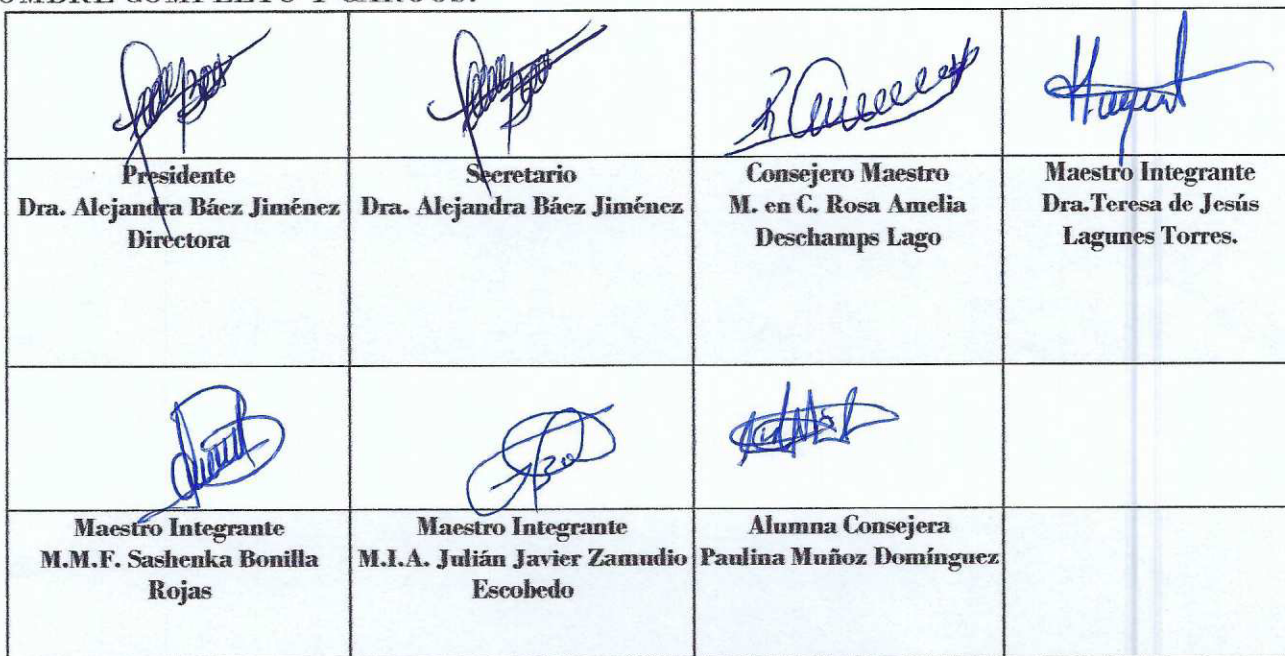 NOMBRE COMPLETO Y CARGOS:
Presidente
Dra. Alejandra Báez Jiménez
Directora
Secretario
Dra. Alejandra Báez Jiménez
Consejero Maestro
M. en C. Rosa Amelia
Deschamps Lago
Maestro Integrante
Dra.Teresa de Jesús
Lagunes Torres.
Maestro Integrante
M.M.F. Sashenka Bonilla
Rojas
Maestro Integrante
M.I.A. Julián Javier Zamudio
Escobedo
Alumna Consejera
Paulina Muñoz Domínguez